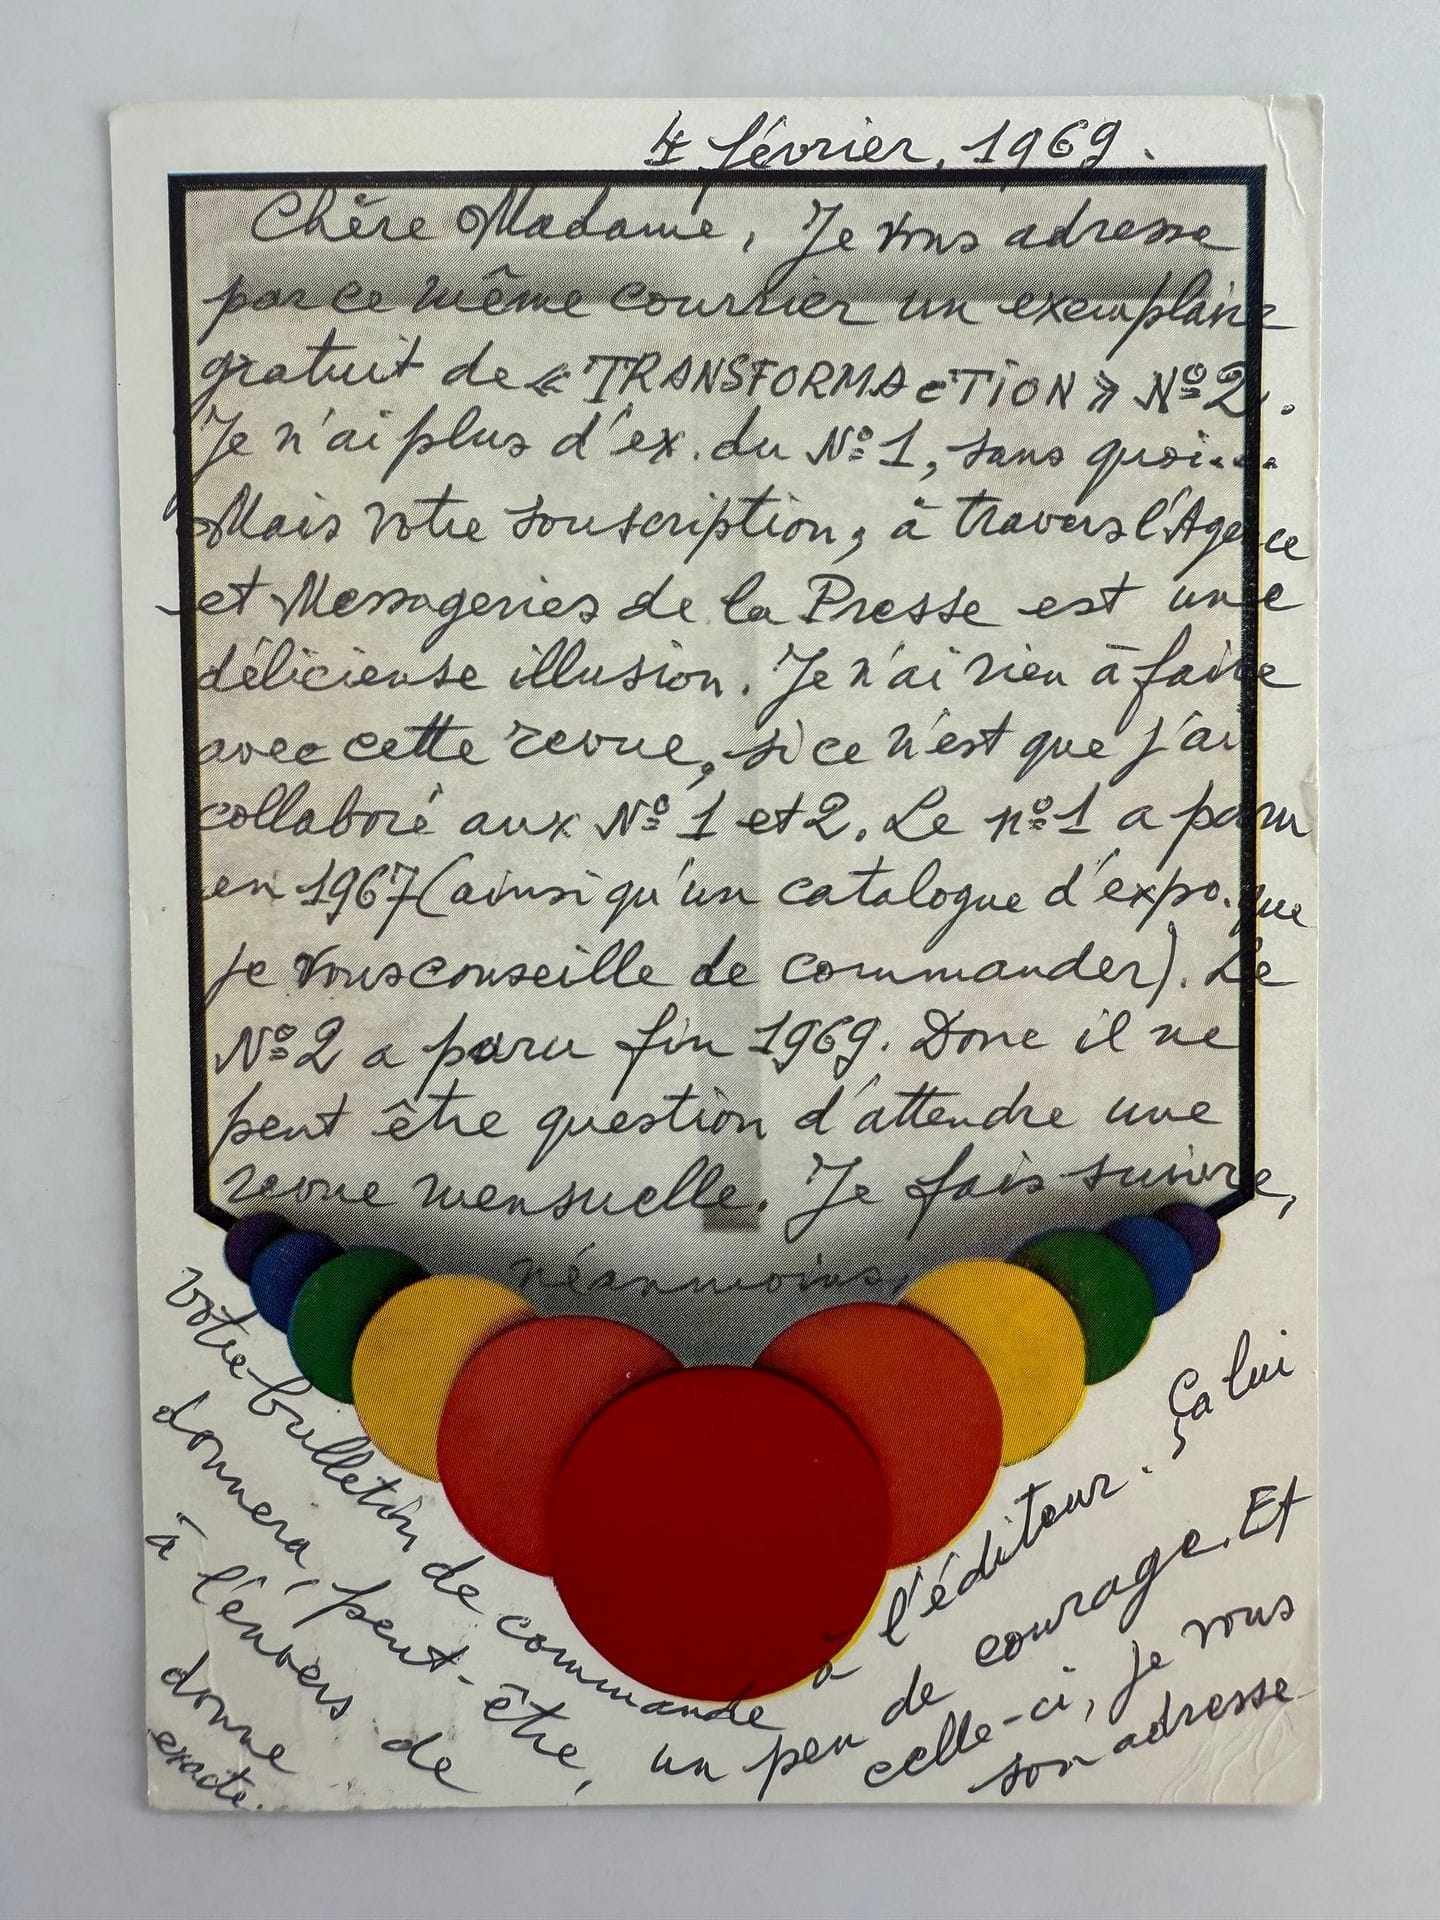 4 février, 1969.
Chère Madame, Je vous adresse
par ce même courrier un exemplaire
gratuit de « TRANSFORMAcTION » Nº 2.
Je n'ai plus d'ex. du Nº 1, sans quoi...
Mais votre souscription, à travers l'Agence
et Messageries de la Presse est une
délicieuse illusion. Je n'ai rien à faire
avec cette revue, si ce n'est que j'ai
collaboré aux Nº 1 et 2. Le nº 1 a paru
en 1967 (ainsi qu'un catalogue d'expo. que
je vous conseille de commander). Le
Nº 2 a paru fin 1969. Donc il ne
peut être question d'attendre une
revue mensuelle. Je fais suivre,
néanmoins,
votre bulletin de commande à l'éditeur. Ça lui
donnera, peut-être, un peu de courage. Et
à l'envers de celle-ci, je vous
donne son adresse
exacte.